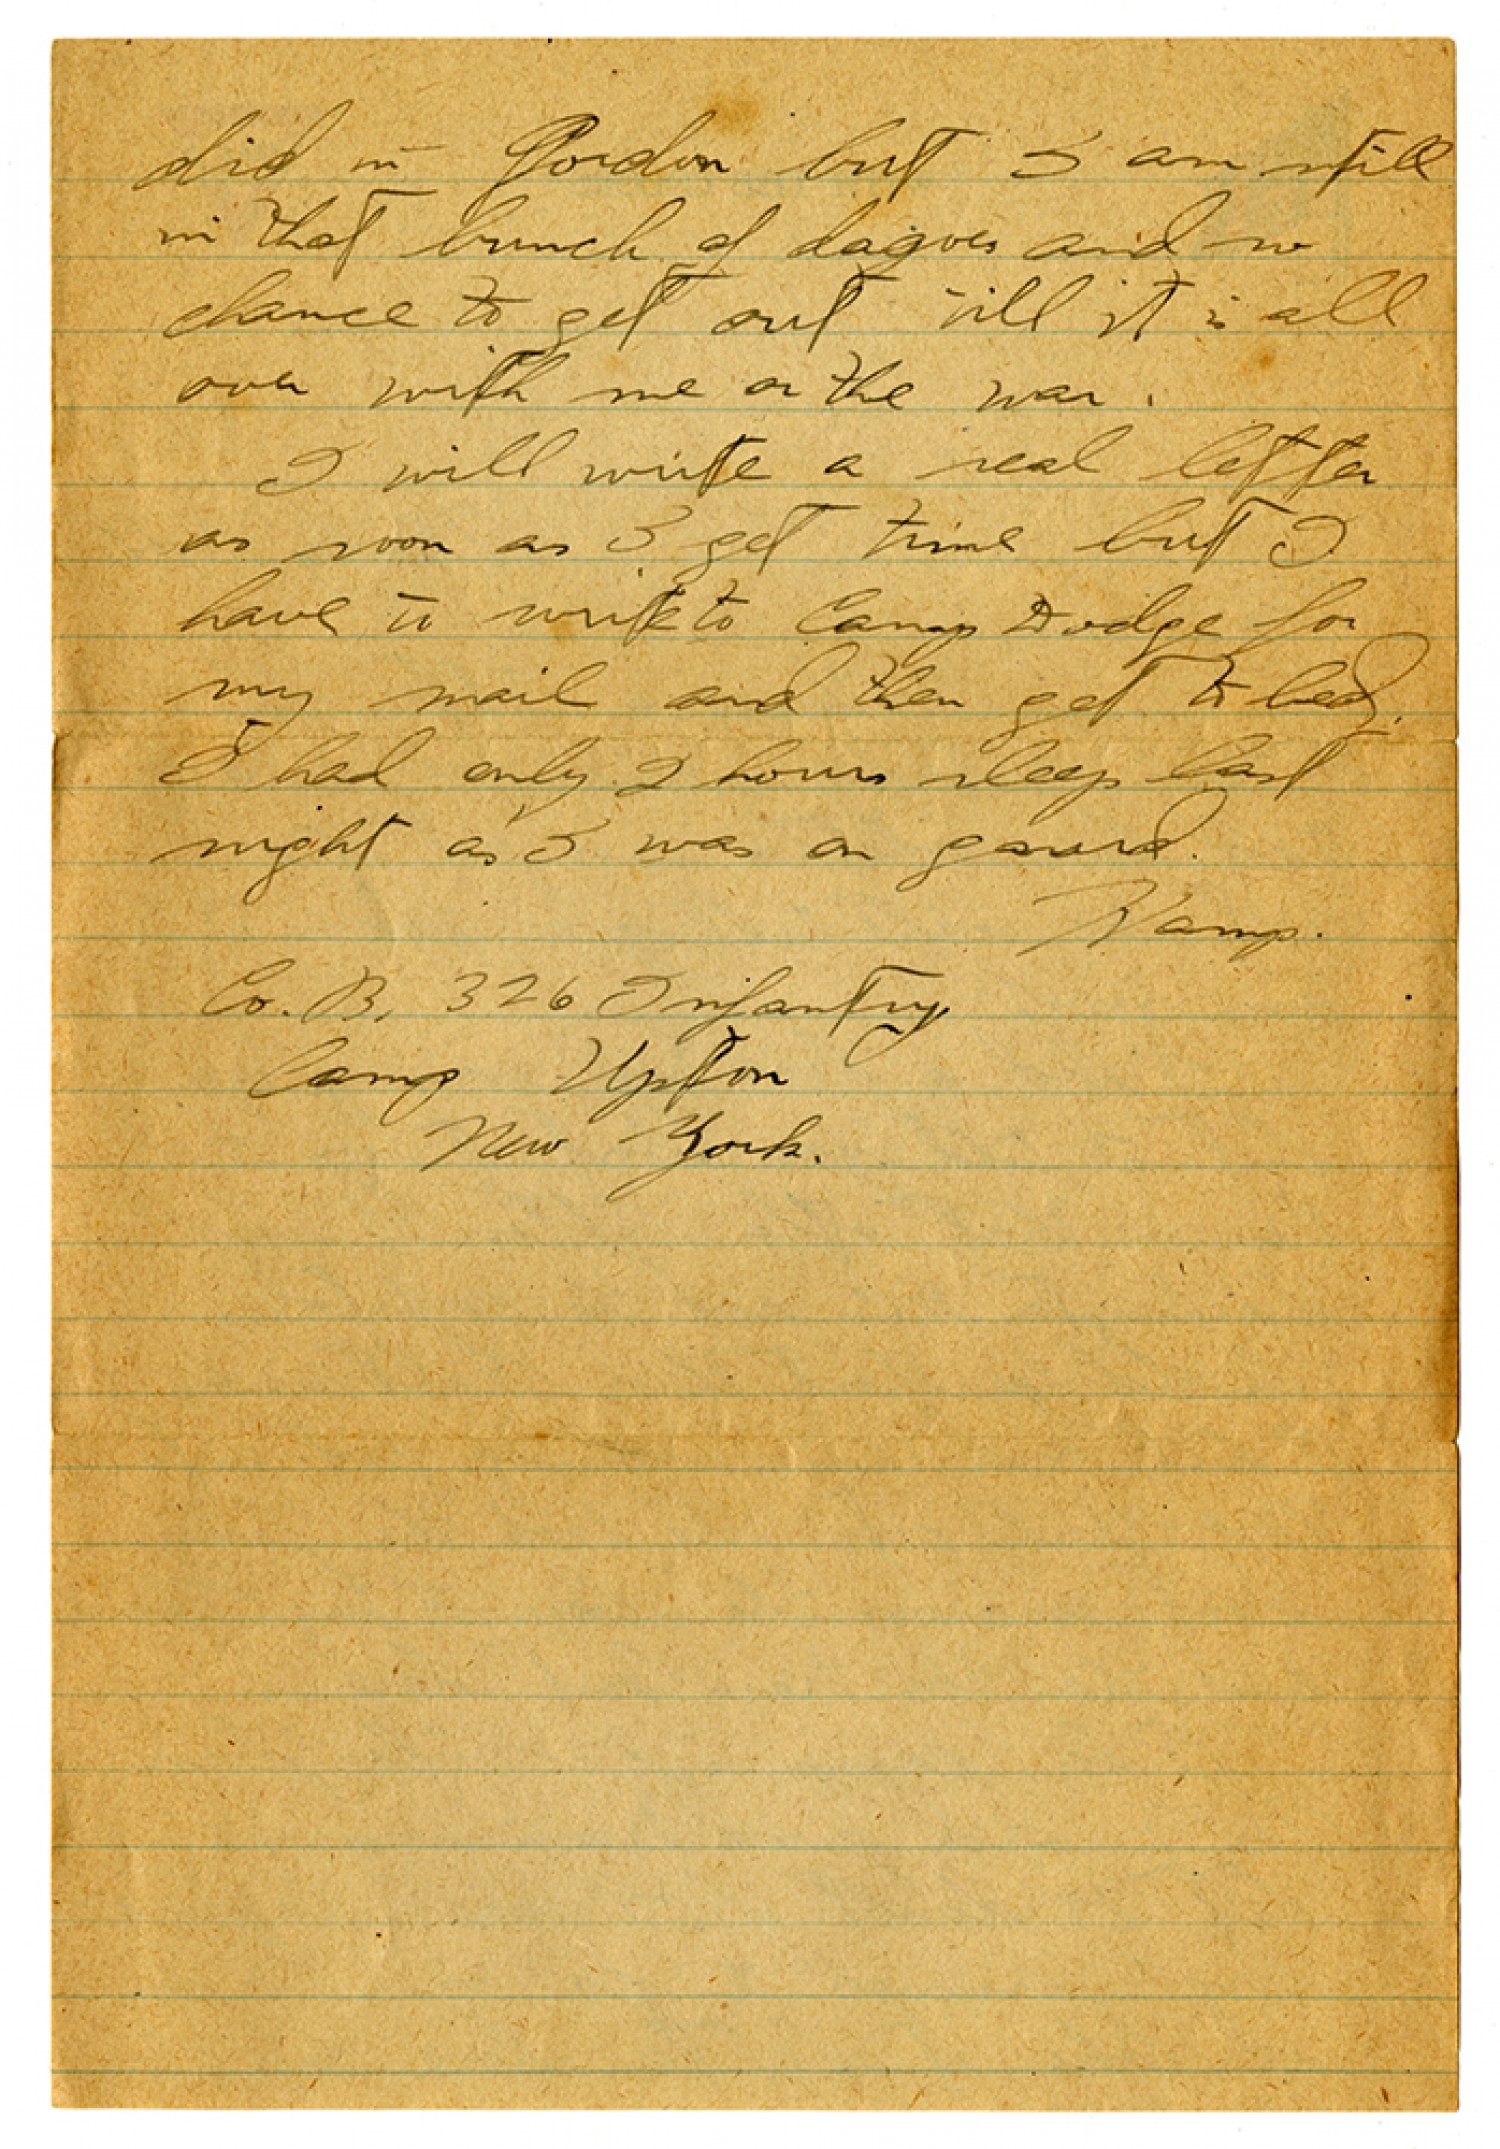 did in Gordon but I am still
in that bunch of dagoes and no
chance to get out till it is all
over with me or the war.
I will write a real letter
as soon as I get time but I
have to write to Camp Dodge for
my mail and then get to bed.
I had only 2 hours sleep last
night as I was on guard.
Kamp.
Co. B, 326 Infantry
Camp Upton
New York.